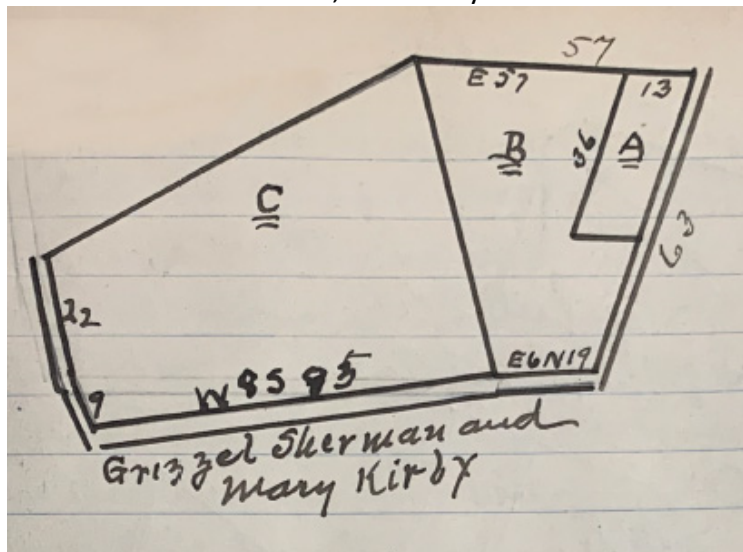 57
E 57
13
B
36
A
C
63
22
E6N19
W 8 S 95
9
Grizzel Sherman and
Mary Kirby